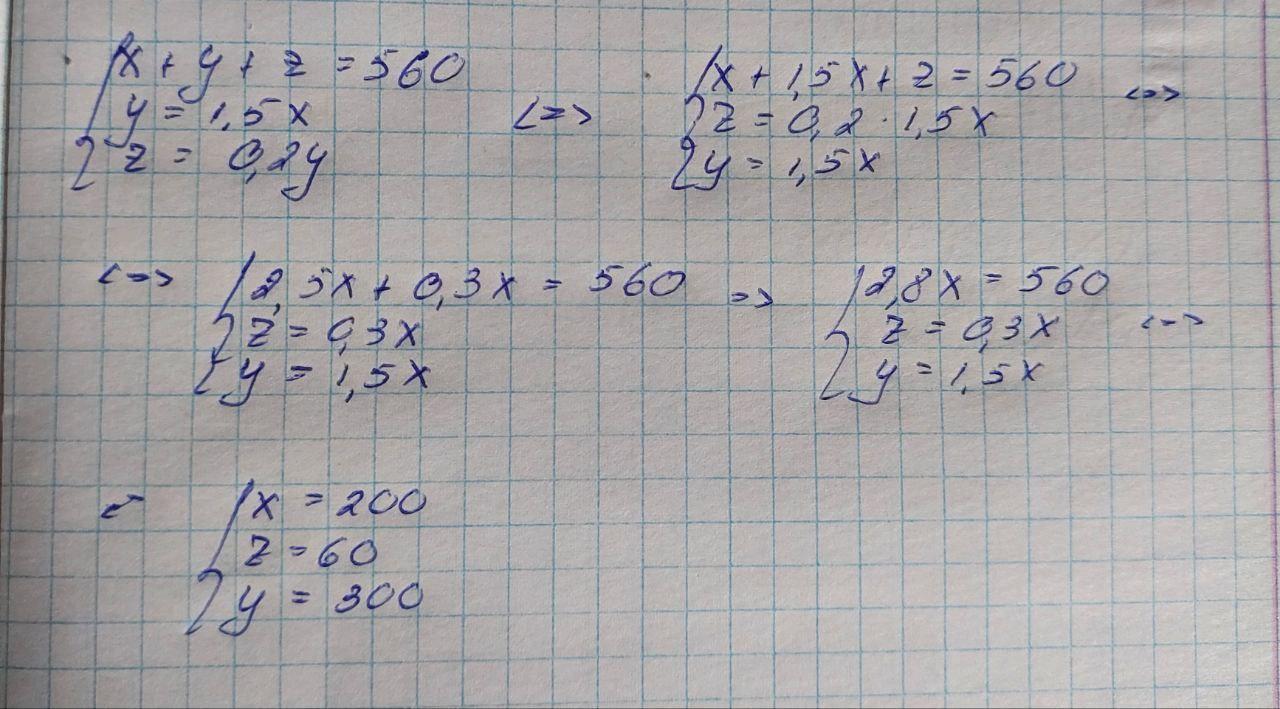 x + y + z = 560
y = 1,5x
z = 0,2y
<=>
x + 1,5x + z = 560
z = 0,2 · 1,5x
y = 1,5x
<=>
<=>
2,5x + 0,3x = 560
z = 0,3x
y = 1,5x
=>
2,8x = 560
z = 0,3x
y = 1,5x
<=>
x = 200
z = 60
y = 300